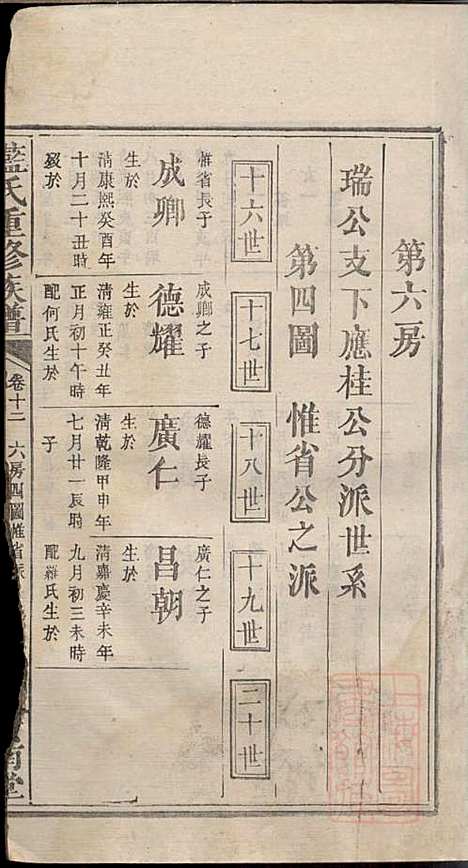 第六房
瑞公支下應桂公分派世系
第四圖 惟省公之派
十六世 十七世 十八世 十九世 二十世
惟省長子
成卿
生於
清康熙癸酉年
十月二十丑時
歿於
成卿之子
德耀
生於
清雍正癸丑年
正月初十午時
配何氏生於
德耀長子
廣仁
生於
清乾隆甲申年
七月廿一辰時
子
廣仁之子
昌朝
生於
清嘉慶辛未年
九月初三未時
配羅氏生於
藍氏重修族譜
卷十二 六房四圖惟省派
堂